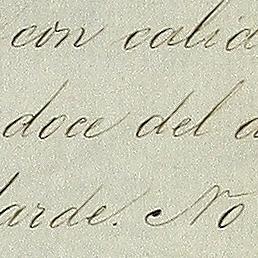 con calid
doce del d
tarde. No